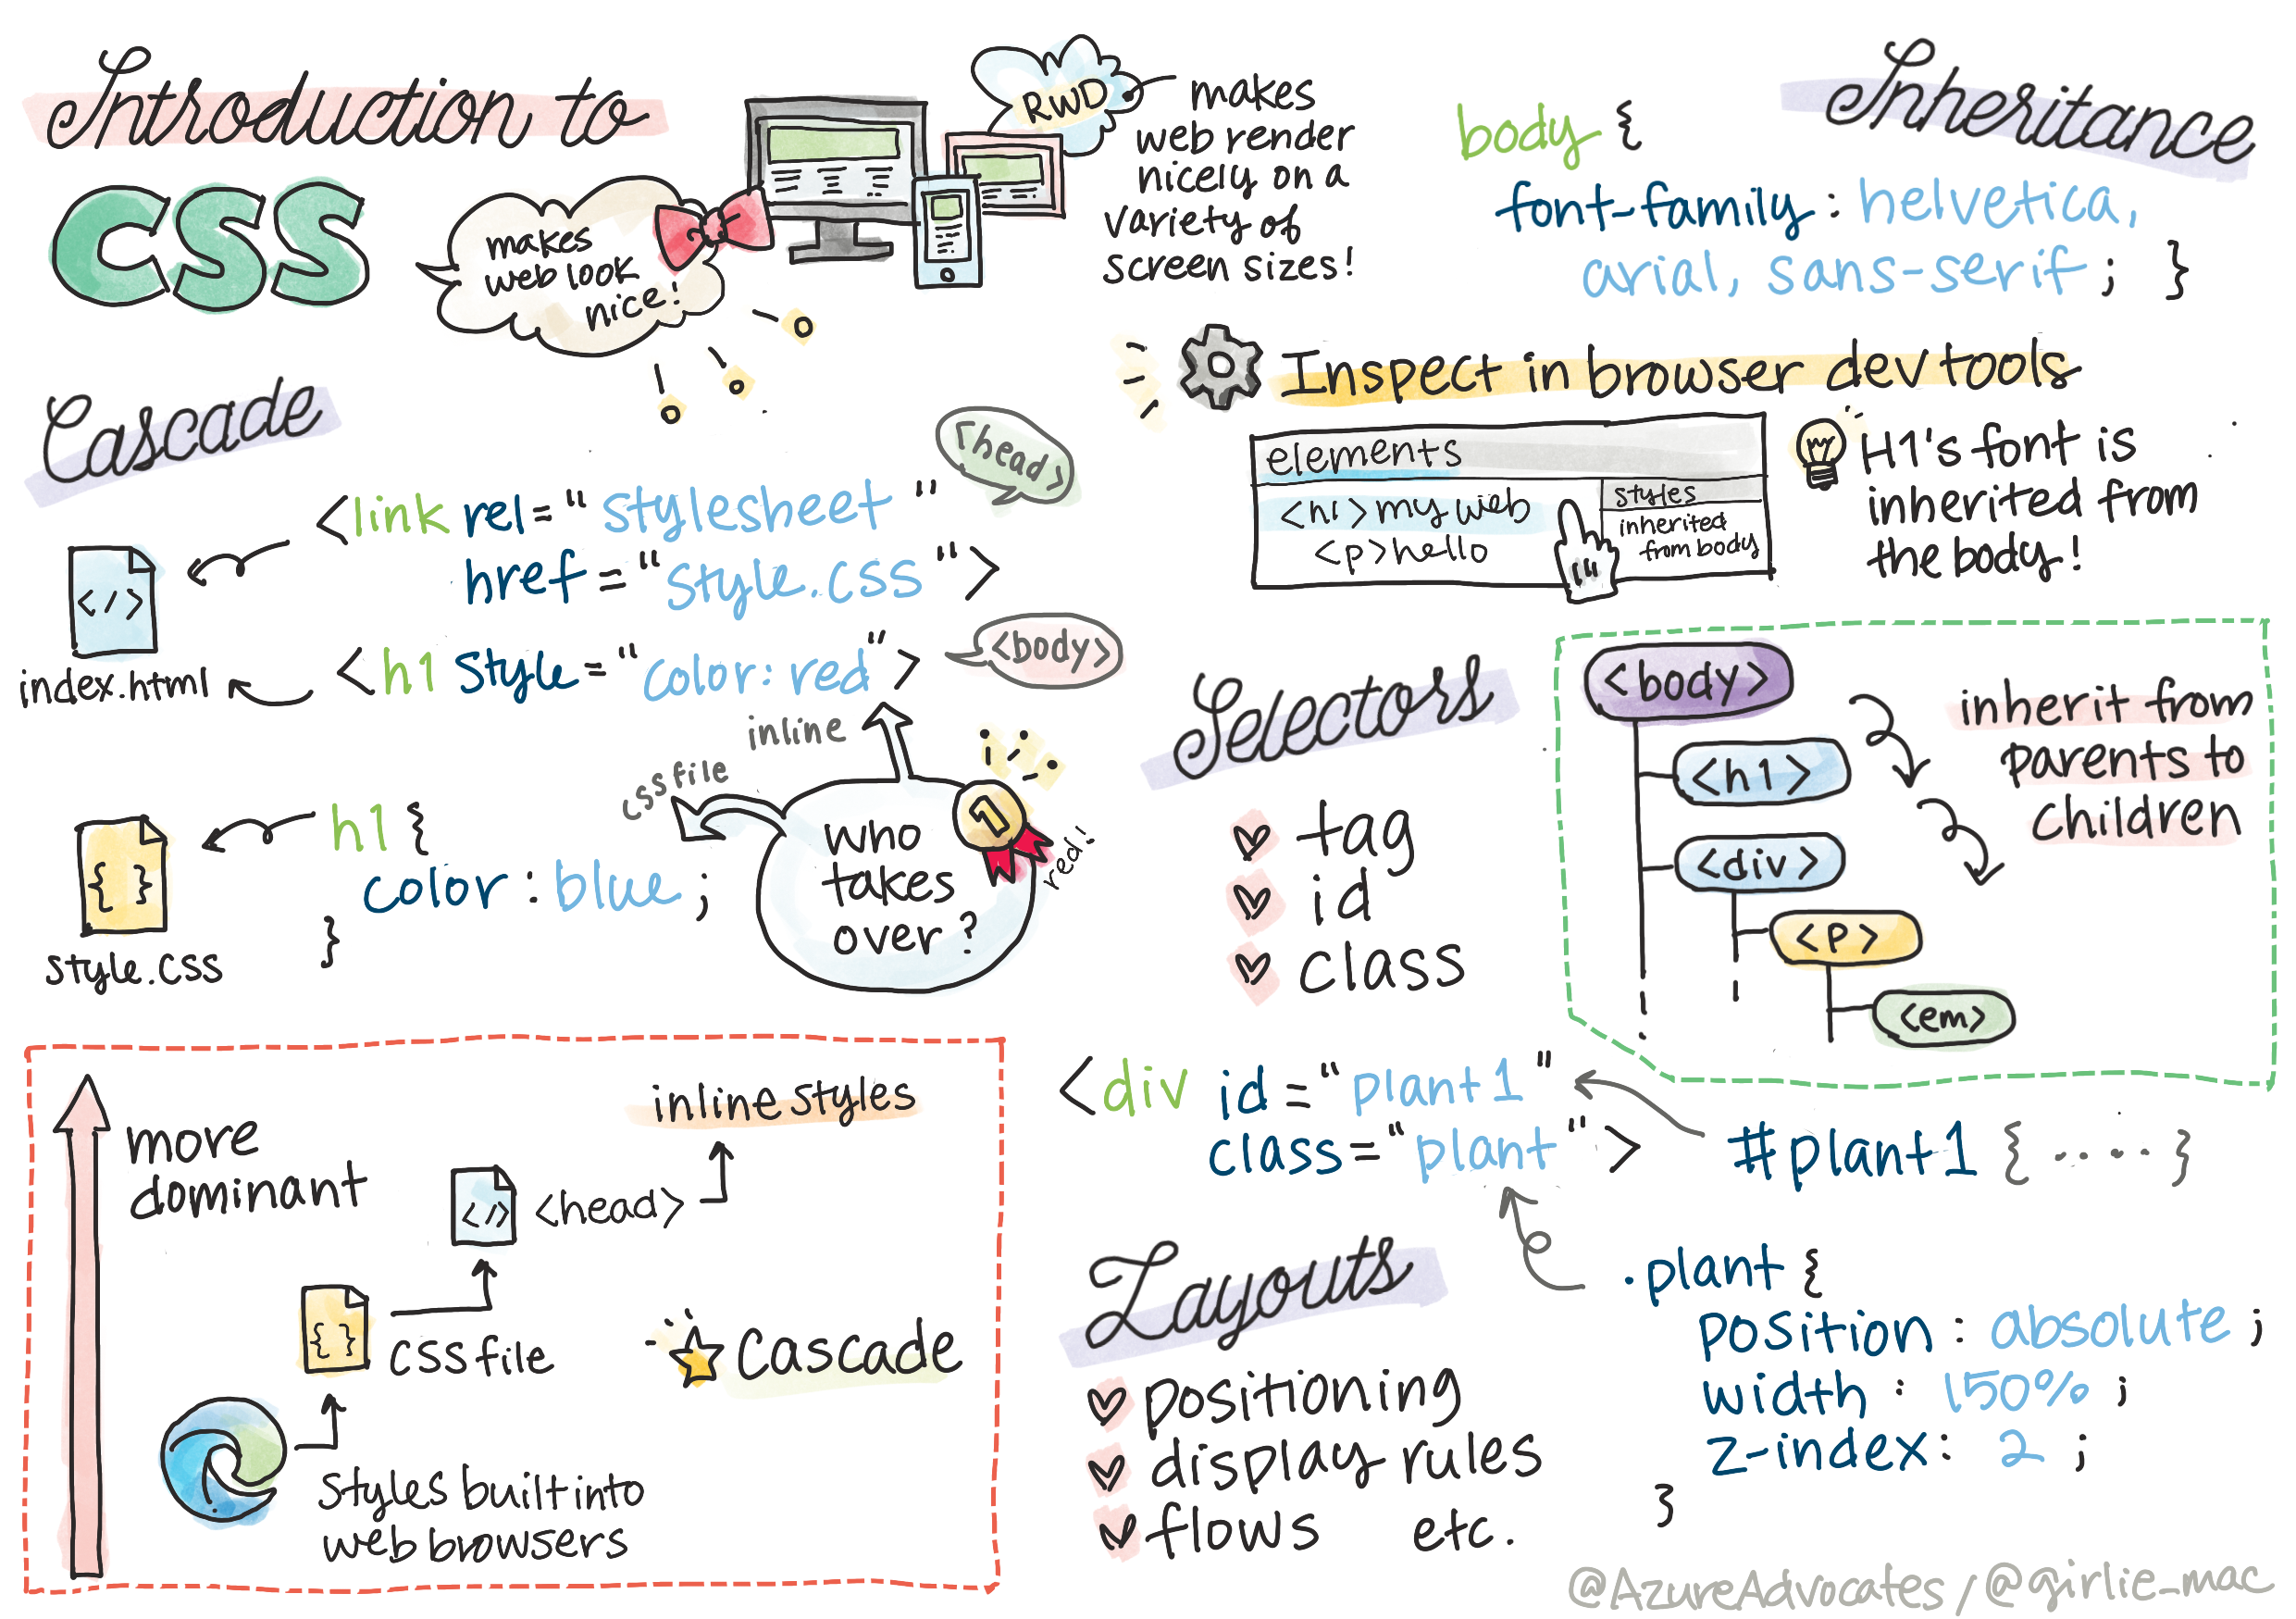 Introduction to
CSS
makes
web look
nice!
RWD
makes
web render
nicely on a
variety of
screen sizes!
Cascade
<head>
<link rel="stylesheet"
href="style.css">
</>
index.html
<h1 style="color: red">
<body>
inline
css file
h1 {
color: blue;
}
{ }
style.css
who
takes
over?
1
red!
more
dominant
inline styles
</>
<head>
{ }
css file
Cascade
styles built into
web browsers
Inheritance
body {
font-family: helvetica,
arial, sans-serif; }
Inspect in browser dev tools
elements
<h1> my web
<p> hello
styles
inherited
from body
H1's font is
inherited from
the body!
Selectors
tag
id
class
<body>
<h1>
<div>
<p>
<em>
inherit from
parents to
children
<div id="plant1"
class="plant">
#plant1 {.....}
.plant {
position: absolute;
width: 150%;
z-index: 2;
}
Layouts
positioning
display rules
flows etc.
@AzureAdvocates / @girlie_mac